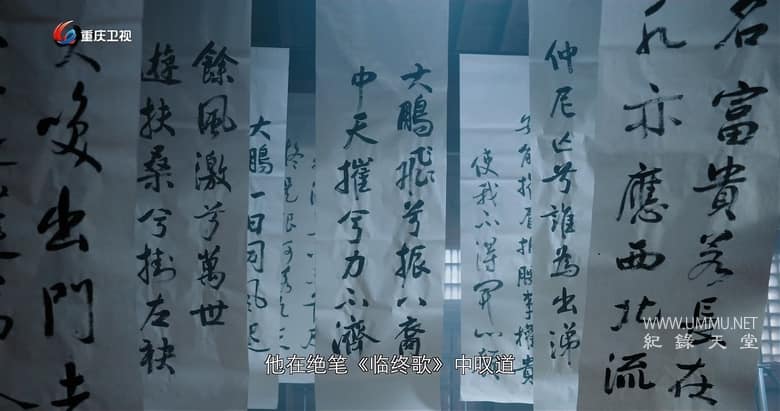 重庆卫视
名富貴若長在
水亦應西北流
仲尼亡兮誰為出涕
安能摧眉折腰事權貴
使我不得開心顏
大鵬飛兮振八裔
中天摧兮力不濟
大鵬一日同風起
餘風激兮萬世
遊扶桑兮掛左袂
笑出門去
WWW.UMMU.NET
紀錄天堂
他在绝笔《临终歌》中叹道